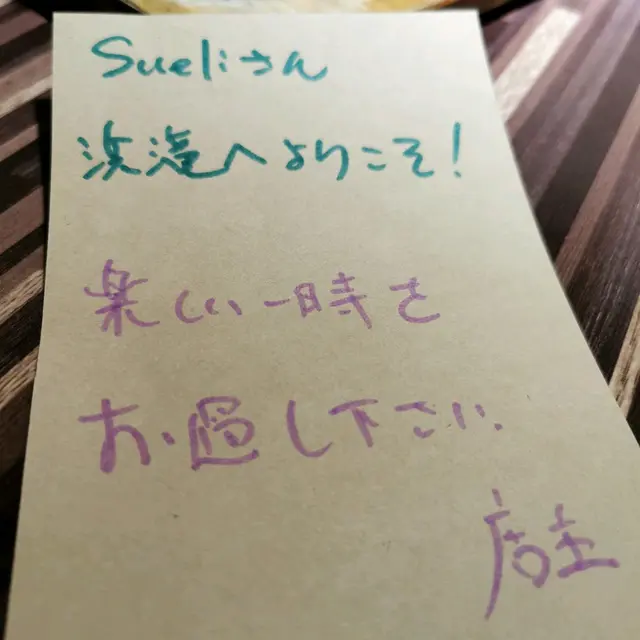 Sueliさん
浜滝へようこそ!
楽しい一時を
お過し下さい
店主